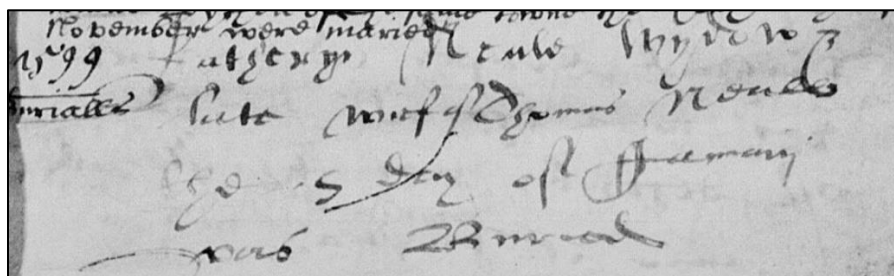 of the same towne the
November were maried
1599 Katheryn Neale wydow
burialls late wief of Thomas Neale
the 5 day of January
was Buried